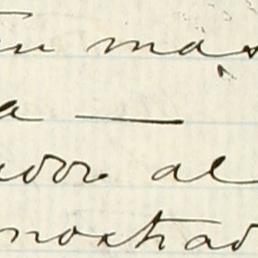 más
a —
ador al
nostrad